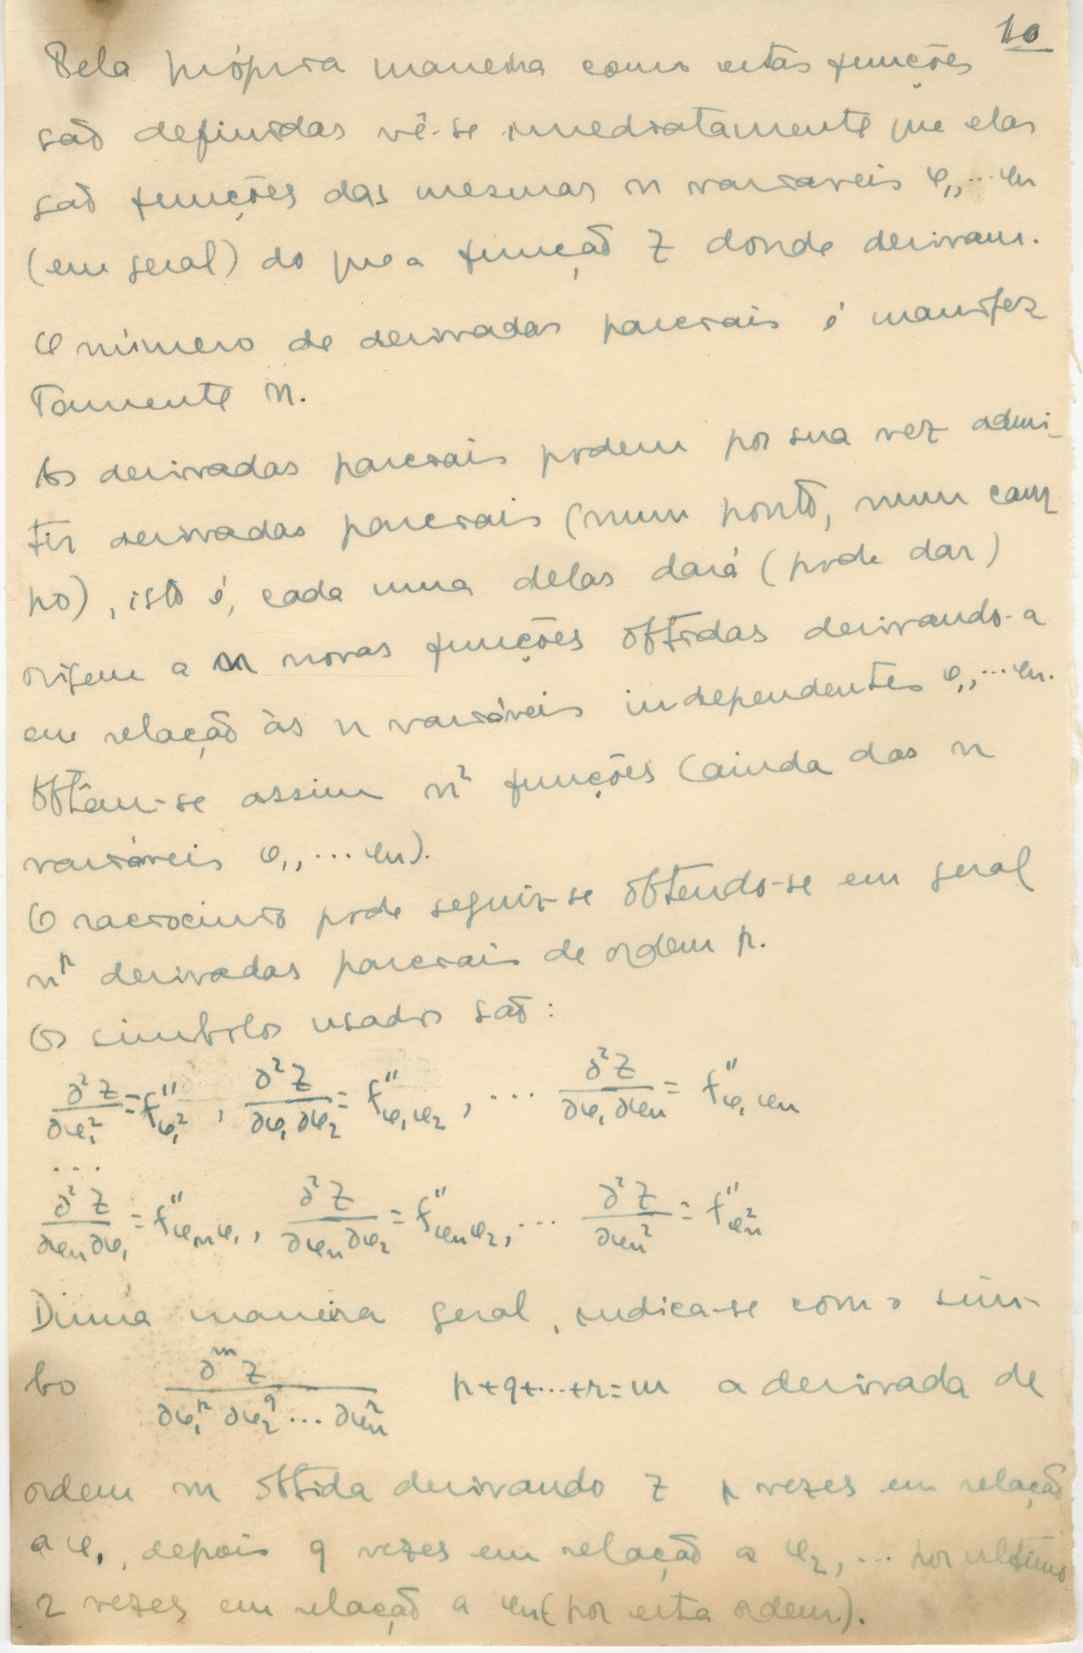 10
Pela própria maneira como estas funções
são definidas vê-se imediatamente que elas
são funções das mesmas n variaveis φ₁,...φn
(em geral) do que a função Z donde derivam.
O número de derivadas parciais é manifes
tamente n.
As derivadas parciais podem por sua vez admi-
tir derivadas parciais (num ponto, num cam
po), isto é, cada uma delas dará (pode dar)
origem a n novas funções obtidas derivando-a
em relação às n variáveis independentes φ₁,...φn.
Obtêm-se assim n² funções (ainda das n
variáveis φ₁,...φn).
O raciocinio pode seguir-se obtendo-se em geral
nᵖ derivadas parciais de ordem p.
Os simbolos usados são:
∂²Z/∂φ₁² = f''φ₁², ∂²Z/∂φ₁∂φ₂ = f''φ₁φ₂, ... ∂²Z/∂φ₁∂φn = f''φ₁φn
...
∂²Z/∂φn∂φ₁ = f''φnφ₁, ∂²Z/∂φn∂φ₂ = f''φnφ₂, ... ∂²Z/∂φn² = f''φn²
Duma maneira geral, indica-se com o sím-
bo ∂ᵐZ/∂φ₁ᵖ∂φ₂^q...∂φnʳ p+q+...+r=m a derivada de
ordem m obtida derivando Z p vezes em relação
a φ₁, depois q vezes em relação a φ₂, ... por ultimo
r vezes em relação a φn (por esta ordem).